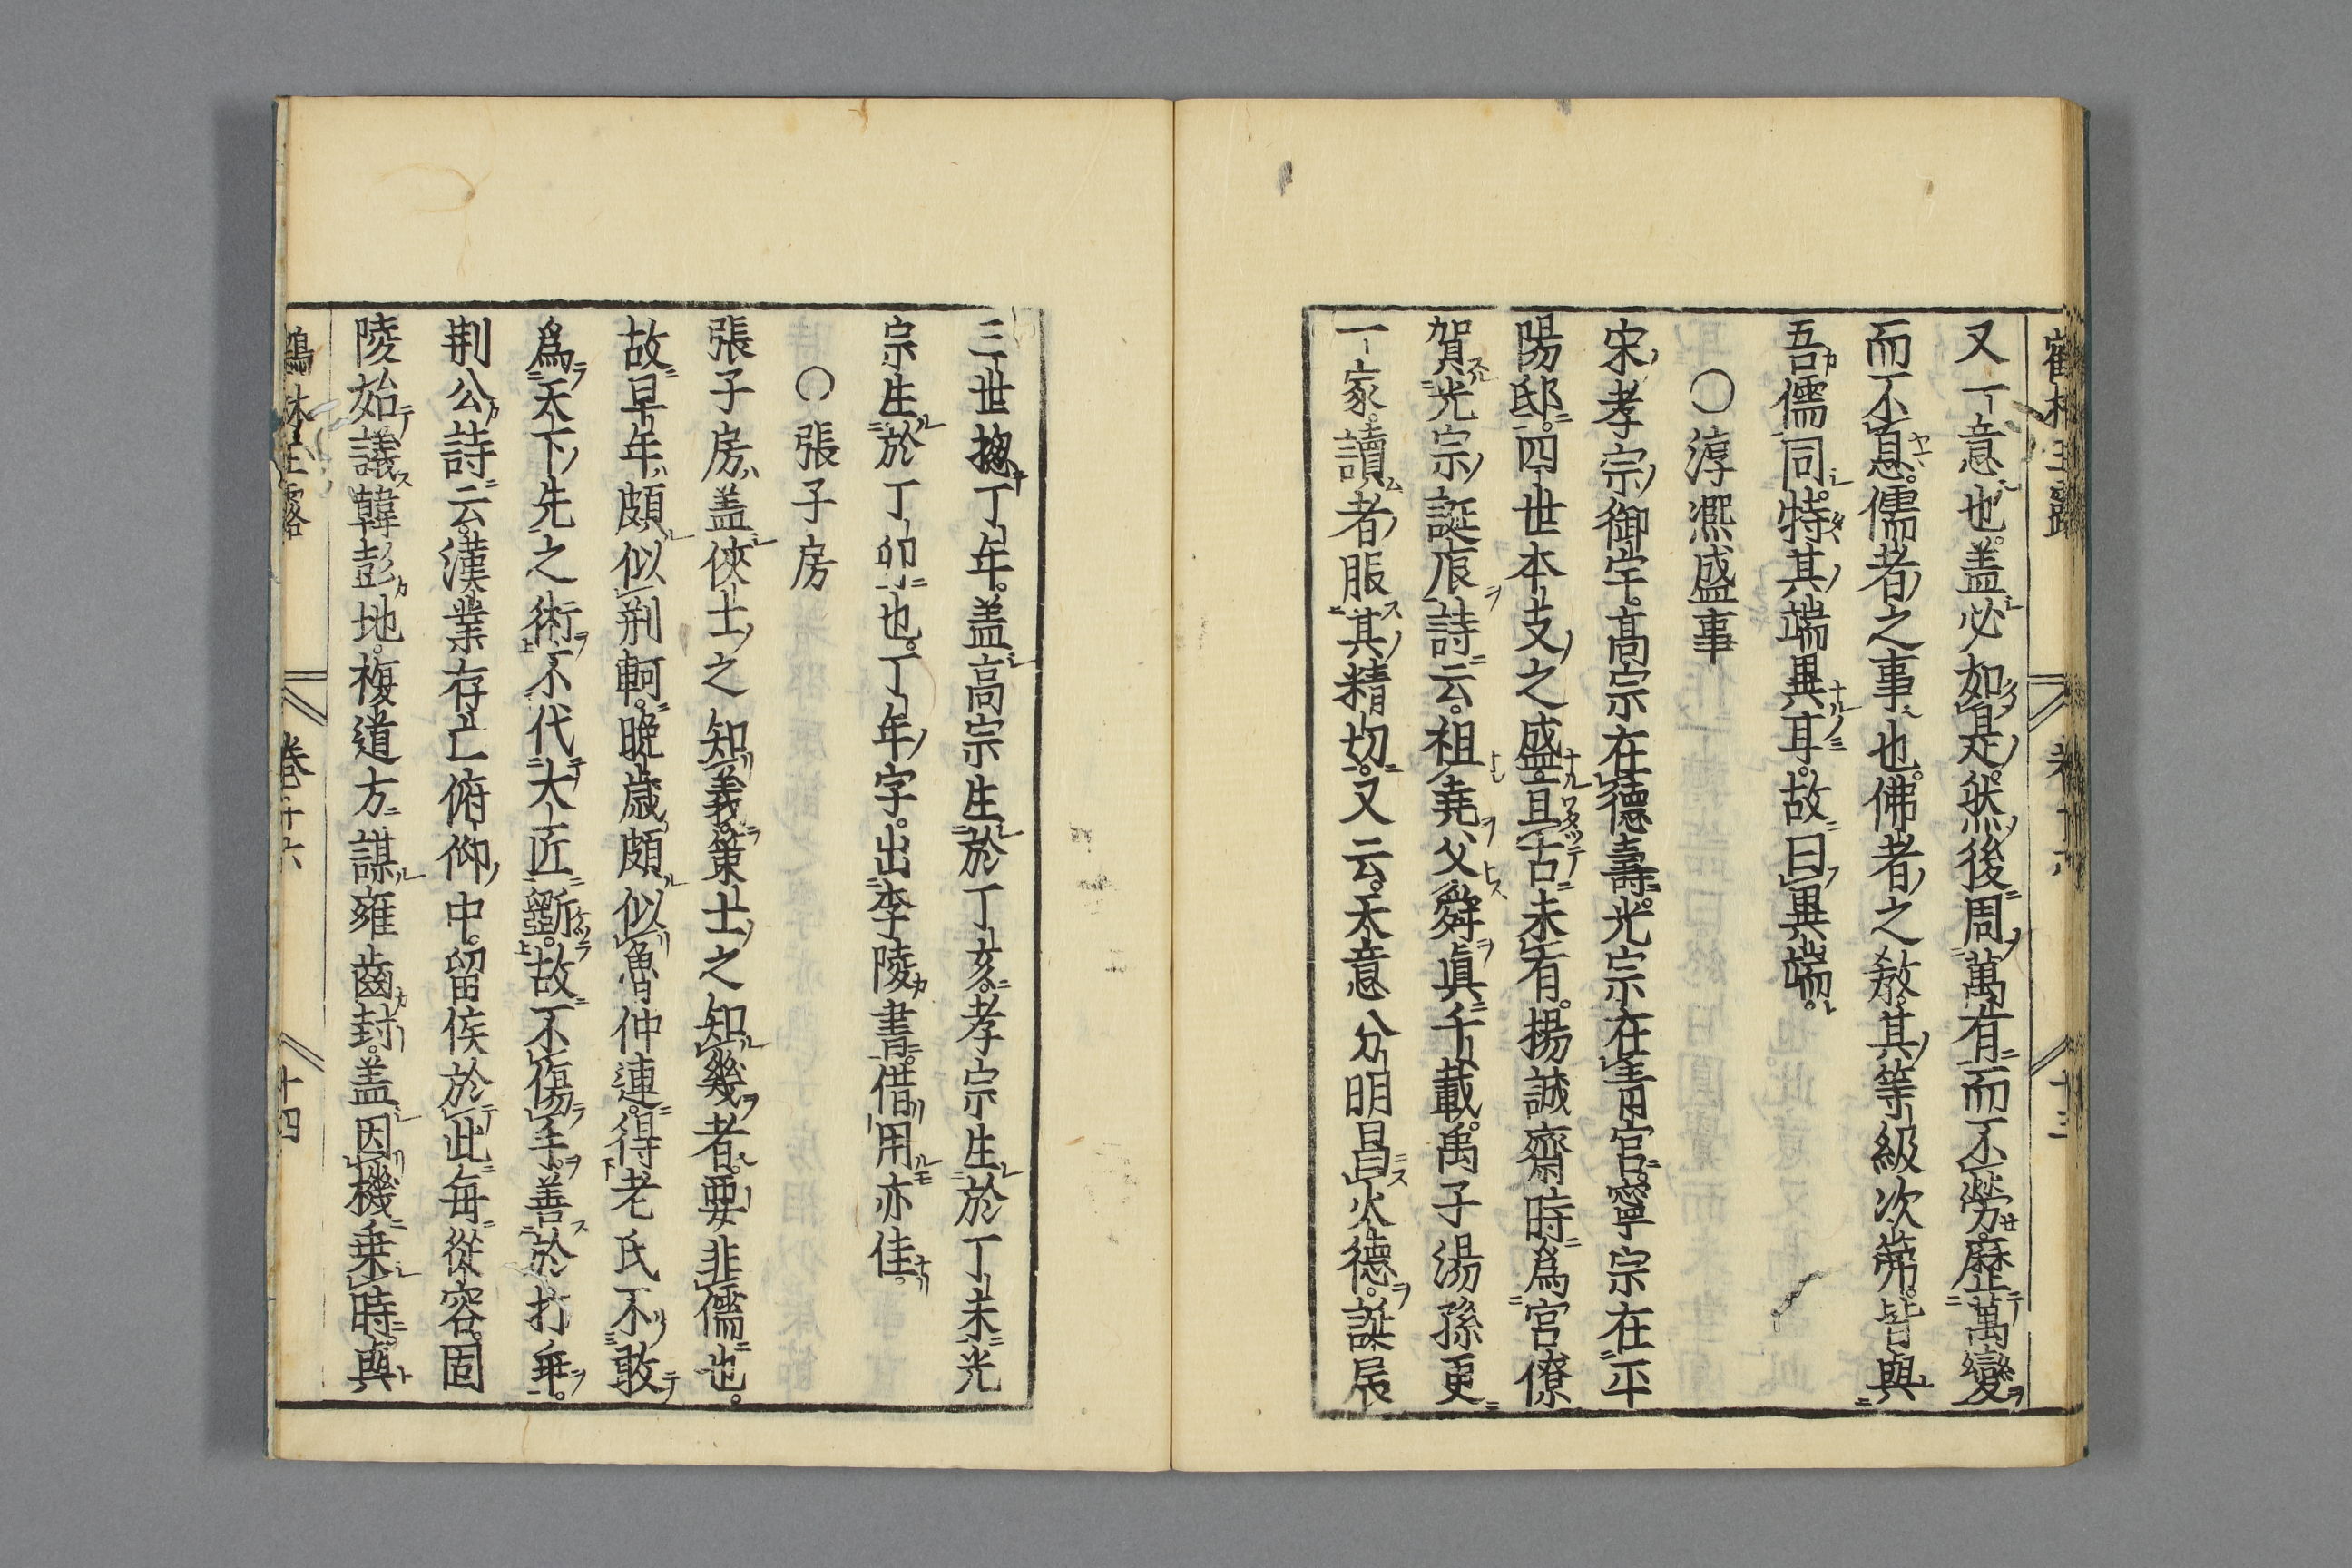 又一意也。盖必如是。然後周萬有而不勞。歷萬變
而不息。儒者之事也。佛者之教。其等級次第。皆與
吾儒同。特其端異耳。故曰異端。
〇淳熈盛事
宋孝宗御宇。高宗在德壽。光宗在青宮。寧宗在平
陽邸。四世本支之盛。亘古未有。揚誠齋時爲宮僚
賀光宗誕辰詩云。祖堯父舜眞千載。禹子湯孫更
一家。讀者服其精切。又云。天意分明昌火德。誕辰
三世揔丁年。盖高宗生於丁亥。孝宗生於丁未。光
宗生於丁卯也。丁年字。出李陵書。借用亦佳。
〇張子房
張子房盖俠士之知義。策士之知幾者。要非儒也。
故早年頗似荆軻。晩歲頗似魯仲連。得老氏不敢
爲天下先之術。不代大匠斵。故不傷手。善於打乖。
荆公詩云。漢業存亡俯仰中。留侯於此毎從容。固
陵始議韓彭地。複道方謀雍齒封。盖因機乗時。與
鶴林玉露 卷十六 十四